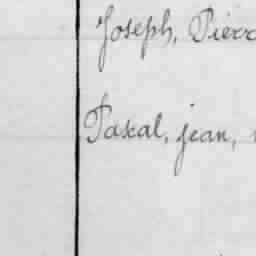 Joseph, Pierr
Pascal, jean,